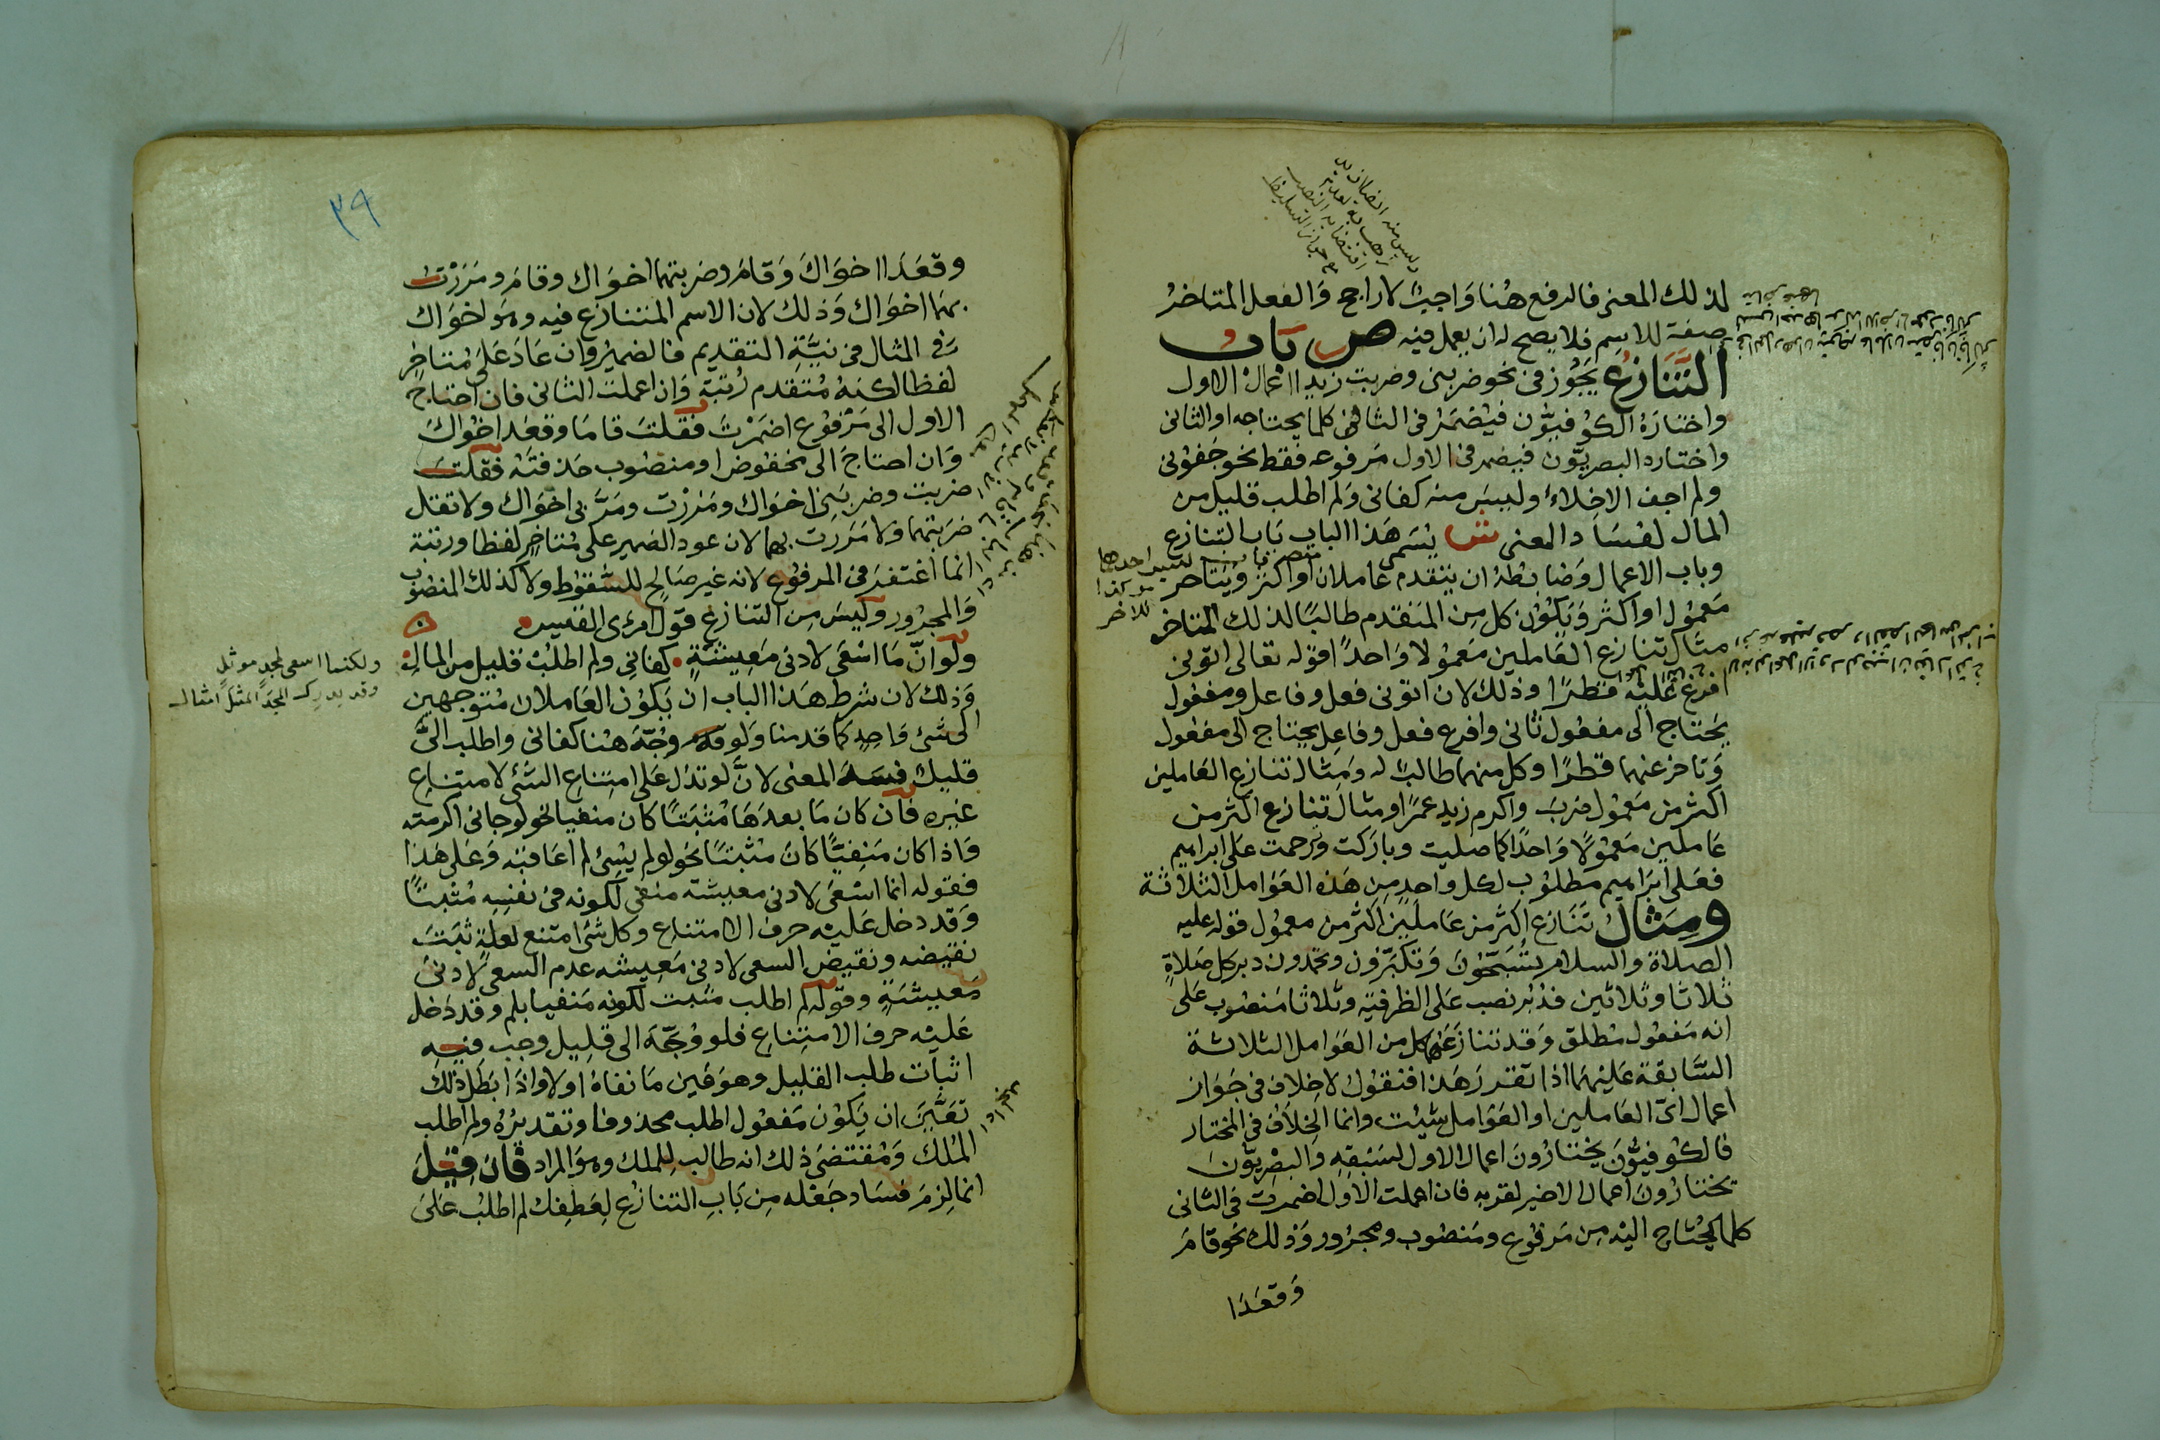 لذلك المعنى فالرفع هنا واجبًا لا راجح والفعل المتاخر
صفة للاسم فلا يصح له ان يعمل فيه ص باب
التنازع يجوز في نحو ضربني وضربت زيدا اعمال الاول
واختاره الكوفيون فيضمر في الثاني كلما يحتاجه او الثاني
واختاره البصريون فيضمر في الاول مرفوعه فقط نحو جفوني
ولم اجف الاخلاء وليس منه كفاني ولم اطلب قليل من
المال لفساد المعنى ش يسمى هذا الباب باب التنازع
وباب الاعمال وضابطه ان يتقدم عاملان او اكثر ويتاخر
معمول او اكثر ويكون كل من المتقدم طالبًا لذلك المتاخر
مثال تنازع العاملين معمولا واحدًا قوله تعالى اتوني
افرغ عليه قطرًا وذلك لان اتوني فعل وفاعل ومفعول
يحتاج الى مفعول ثاني وافرغ فعل وفاعل يحتاج الى مفعول
وتاخر عنهما قطرًا وكل منهما طالبًا له ومثال تنازع العاملين
اكثر من معمول ضرب واكرم زيد عمرًا ومثال تنازع اكثر من
عاملين معمولًا واحدًا كما صليت وباركت وترحمت على ابراهيم
فعلى ابراهيم مطلوب لكل واحد من هذه العوامل الثلاثة
ومثال تنازع اكثر من عاملين اكثر من معمول قوله عليه
الصلاة والسلام يسبحون وتكبرون وتحمدون دبر كل صلاة
ثلاثا وثلاثين فدبر نصب على الظرفيه وثلاثا منصوب على
انه مفعول مطلق وقد تنازعهما كل من العوامل الثلاثة
السابقة عليهما اذا تقرر هذا فنقول لا خلاف في جواز
اعمال اي العاملين او العوامل شيت وانما الخلاف في المختار
فالكوفيون يختارون اعمال الاول لسبقه والبصريون
يختارون اعمال الاخير لقربه فان اعملت الاول اضمرت في الثاني
كلما يحتاج اليه من مرفوع ومنصوب ومجرور وذلك نحو قام
وقعدا
وقعدا اخواك وقام وضربتهما اخواك وقام ومررت
بهما اخواك وذلك لان الاسم المتنازع فيه وهو اخواك
في المثال في نية التقديم فالضمير وان عاد على متاخر
لفظا لكنه متقدم رتبة وان اعملت الثاني فان احتاج
الاول الى مرفوع اضمرت فقلت قاما وقعد اخواك
وان احتاج الى مخفوض او منصوب حذفته فقلت
ضربت وضربني اخواك ومررت ومر بي اخواك ولا تقل
ضربتهما ولا مررت بهما لان عود الضمير على متاخر لفظا ورتبة
انما اغتفر في المرفوع لانه غير صالح للسقوط ولا كذلك المنصوب
والمجرور وليس من التنازع قول امرى القيس
ولو ان ما اسعى لادنى معيشة كفاني ولم اطلب قليل من المال
ولكنما اسعى لمجد موثل
وقد يدرك المجد الموثل امثالي
وذلك لان شرط هذا الباب ان يكون العاملان متوجهين
الى شئ واحد كما قدمنا ولو وجه هنا كفاني واطلب الى
قليل فسد المعنى لان لو تدل على امتناع الشئ لامتناع
غيره فان كان ما بعدها مثبتًا كان منفيا نحو لو جاني اكرمته
واذا كان منفيًا كان مثبتًا نحو لو لم يسئ لم اعاقبه وعلى هذا
فقوله انما اسعى لادنى معيشة منفي لكونه في نفسه مثبتًا
وقد دخل عليه حرف الامتناع وكل شئ امتنع لعلة ثبت
نقيضه ونقيض السعى لادنى معيشه عدم السعى لادنى
معيشة وقوله لم اطلب مثبت لكونه منفيا بلم وقد دخل
عليه حرف الامتناع فلو وجه الى قليل وجب فيه
اثبات طلب القليل وهو عين ما نفاه اولا واذا بطل ذلك
تعين ان يكون مفعول اطلب محذوفا وتقديره ولم اطلب
الملك ومقتضى ذلك انه طالب للملك وهو المراد فان قيل
انما لزم فساد جعله من باب التنازع لعطفك لم اطلب على
٣٩